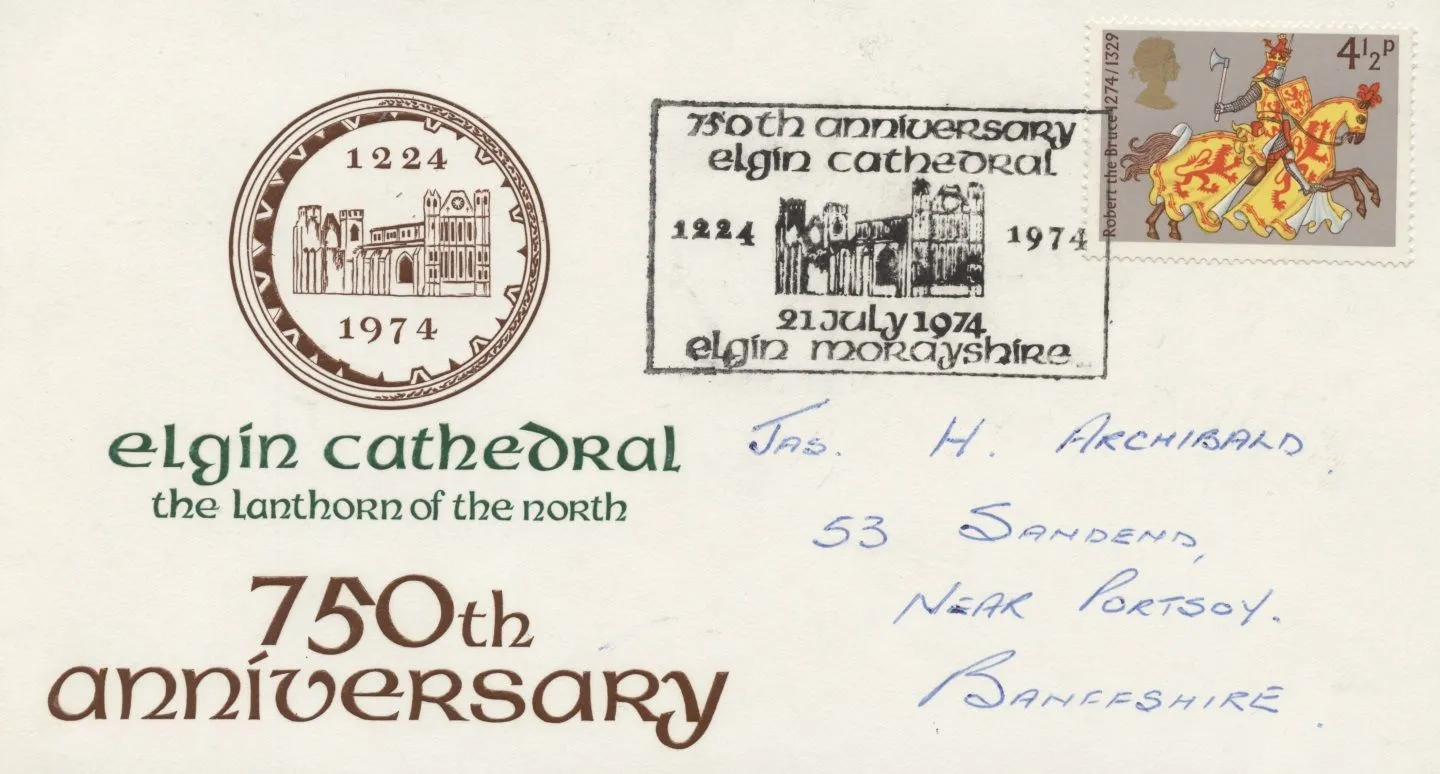 1224
1974
elgin cathedral
the lanthorn of the north
750th
anniversary
750th anniversary
elgin cathedral
1224 1974
21 July 1974
elgin morayshire
Robert the Bruce 1274/1329
4½P
Jas. H. Archibald.
53 Sandend,
Near Portsoy.
Banffshire.